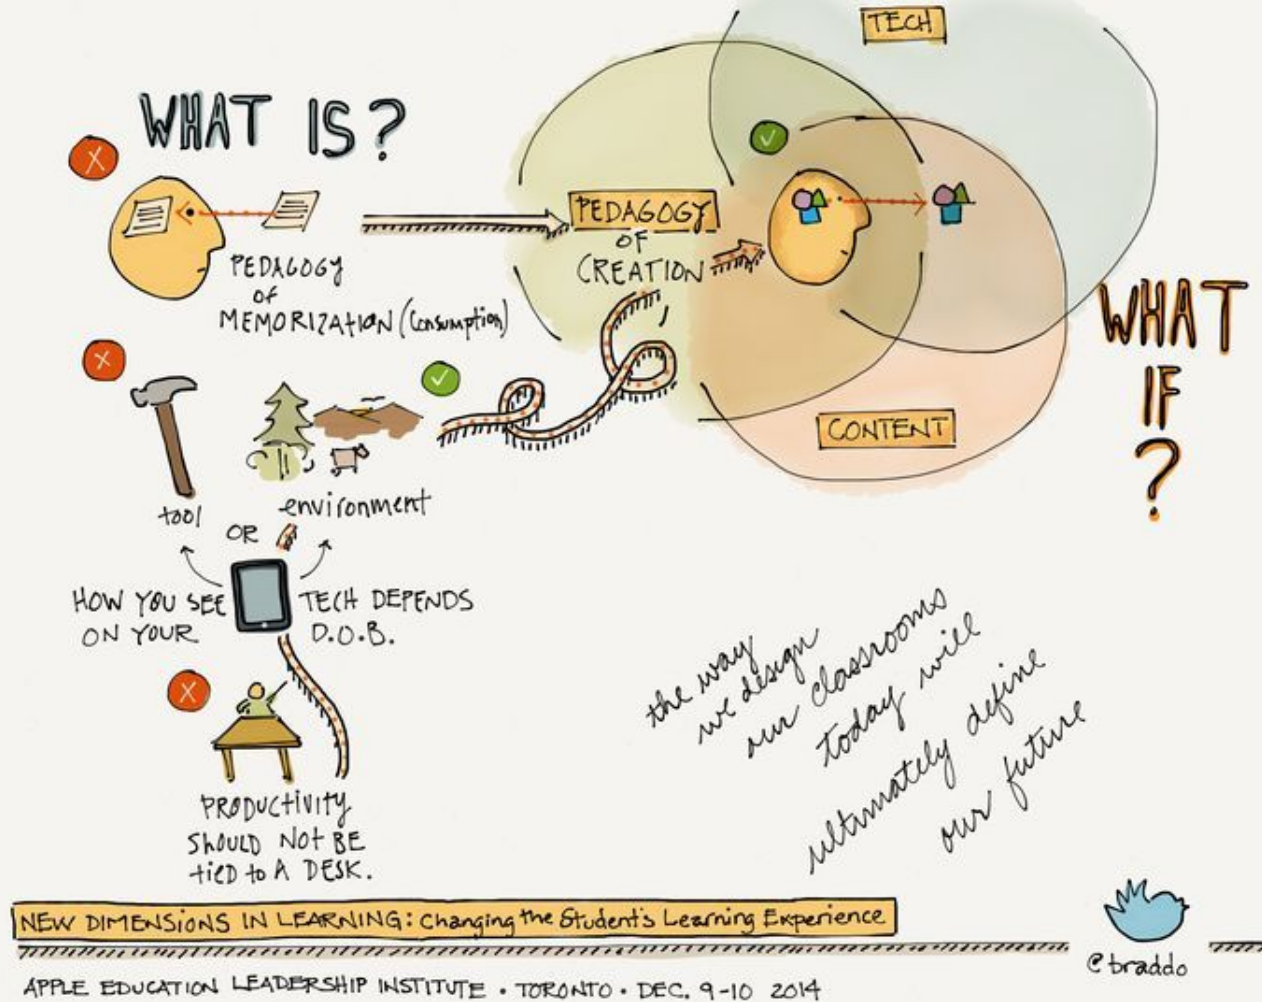 WHAT IS?
PEDAGOGY
of
MEMORIZATION (Consumption)
TECH
PEDAGOGY
OF
CREATION
CONTENT
WHAT
IF
?
tool
OR
environment
HOW YOU SEE TECH DEPENDS
ON YOUR D.O.B.
PRODUCTIVITY
SHOULD NOT BE
TIED to A DESK.
the way
we design
our classrooms
today will
ultimately define
our future
NEW DIMENSIONS IN LEARNING: Changing the Student's Learning Experience
@braddo
APPLE EDUCATION LEADERSHIP INSTITUTE • TORONTO • DEC. 9-10 2014